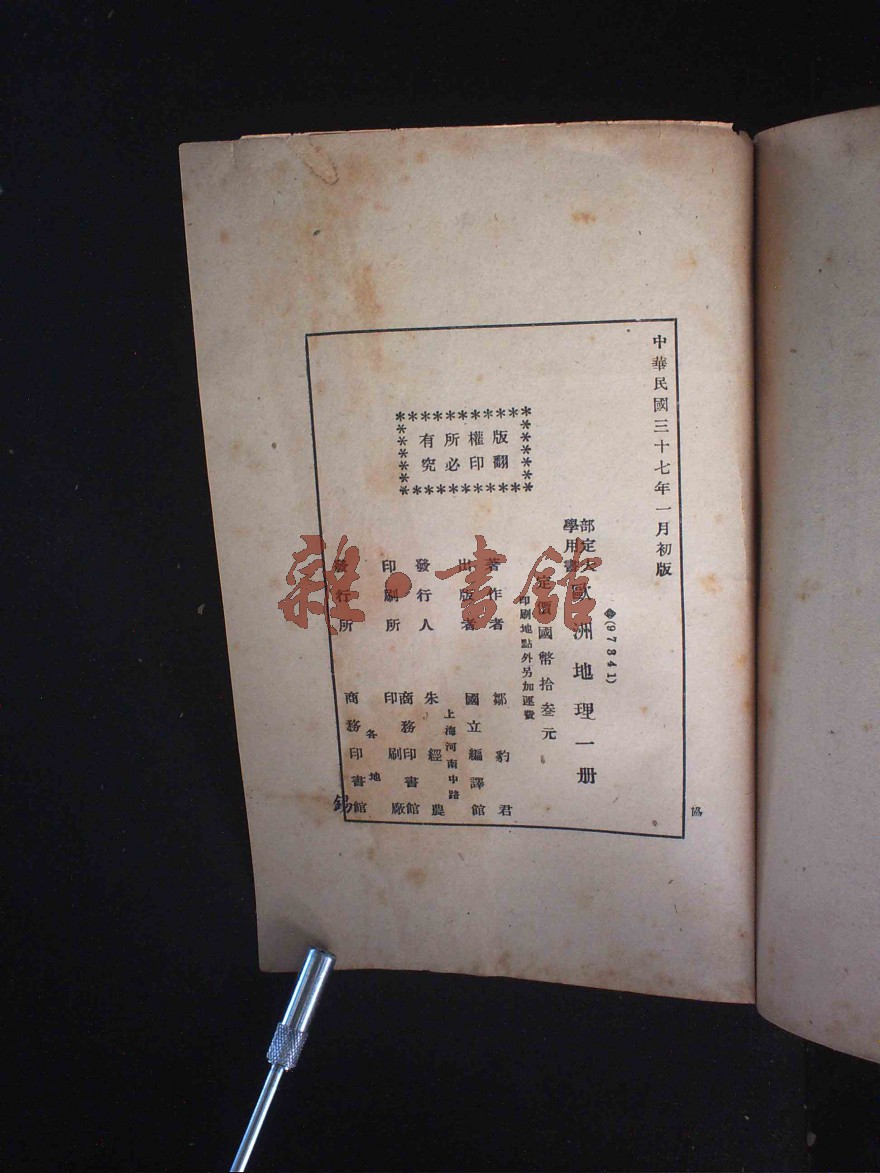 中華民國三十七年一月初版
(97341)
部定大學用書
歐洲地理一册
定價國幣拾叁元
印刷地點外另加運費
版權所有
翻印必究
著作者 鄒豹君
出版者 國立編譯館
上海河南中路
發行人 朱經農
印刷所 商務印書館印刷廠
各地
發行所 商務印書館
協
錫
雜·書館